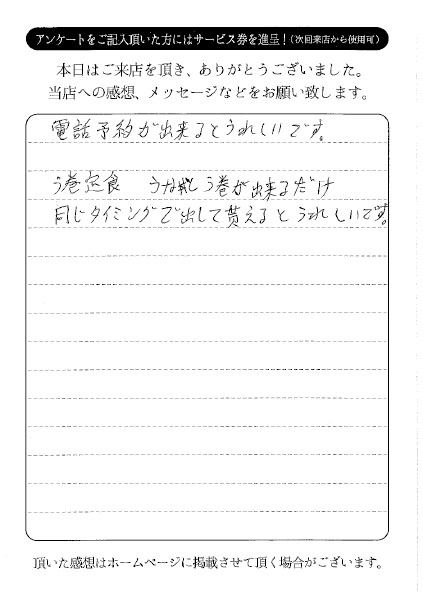 アンケートをご記入頂いた方にはサービス券を進呈！(次回来店から使用可)
本日はご来店を頂き、ありがとうございました。
当店への感想、メッセージなどをお願い致します。
電話予約が出来るとうれしいです。
う巻定食 う巻が出来るだけ
同じタイミングで出して貰えるとうれしいです。
頂いた感想はホームページに掲載させて頂く場合がございます。